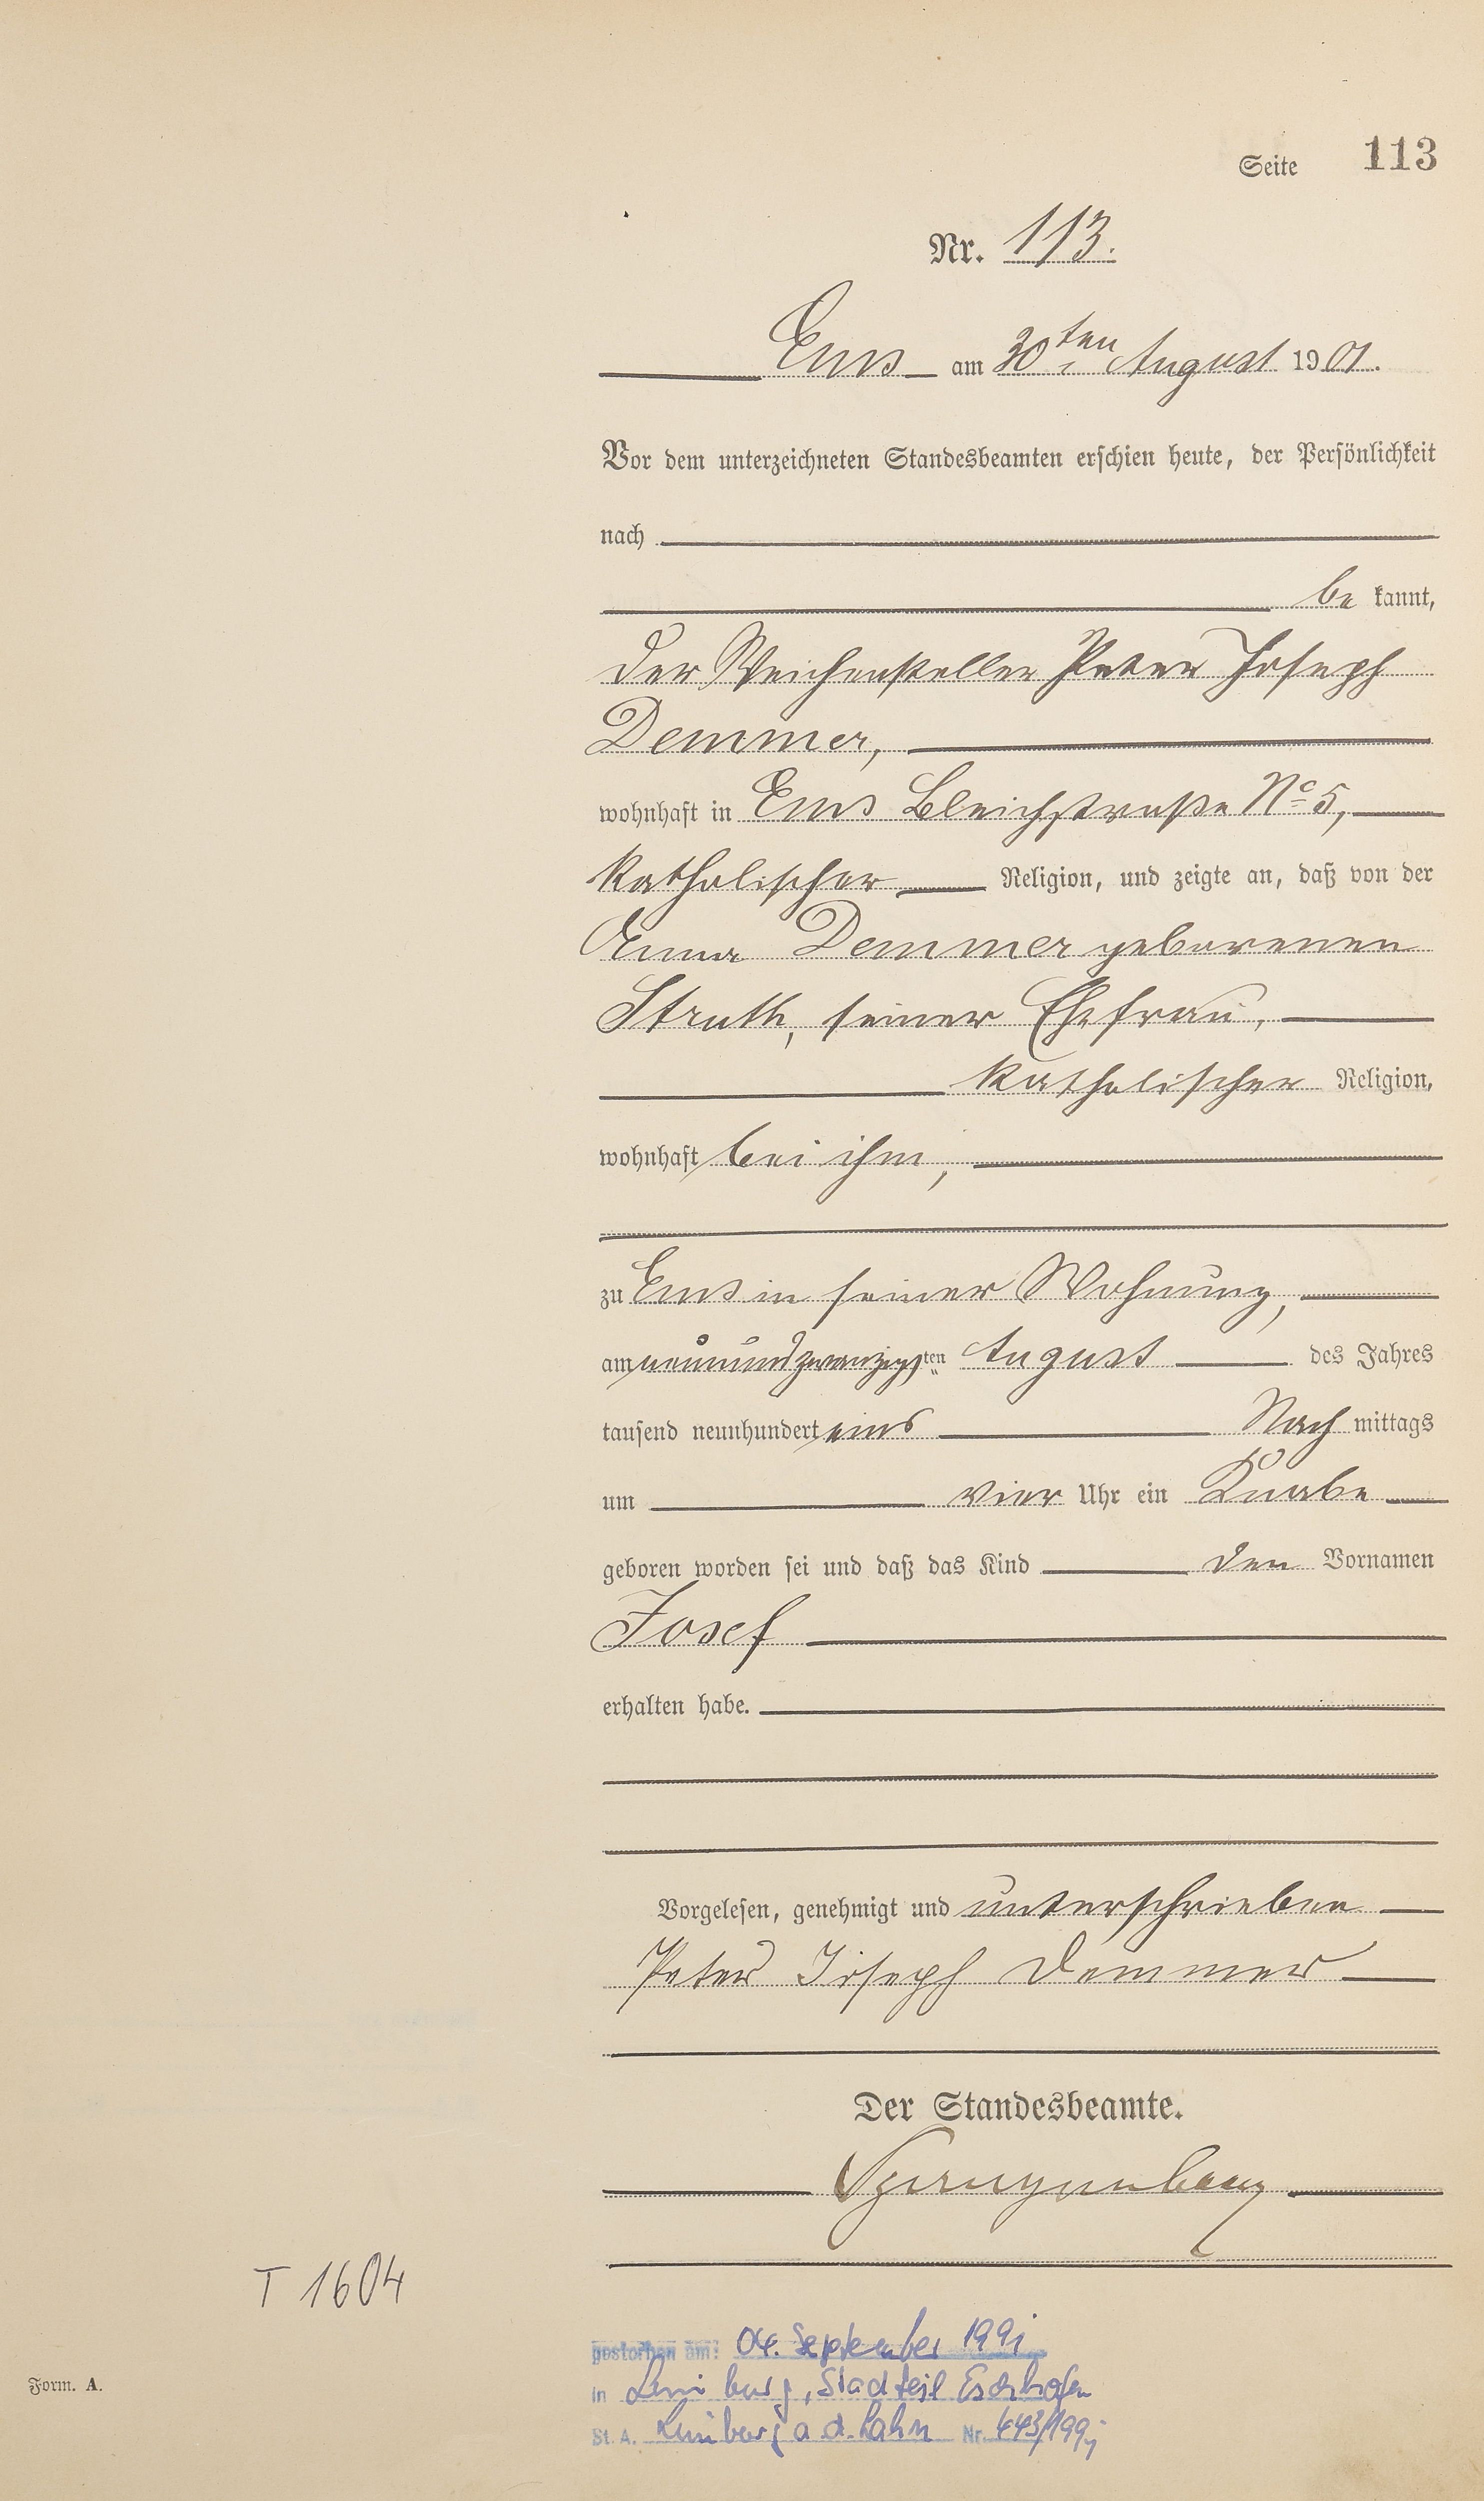 Seite 113
Nr. 113.
Ems am 30ten August 1901.
Vor dem unterzeichneten Standesbeamten erschien heute, der Persönlichkeit
nach
be kannt,
der Weichensteller Peter Joseph
Demmer,
wohnhaft in Ems Bleichstraße No 5,
katholischer Religion, und zeigte an, daß von der
Anna Demmer geborenen
Struth, seiner Ehefrau,
katholischer Religion,
wohnhaft bei ihm,
zu Ems in seiner Wohnung,
am neunundzwanzigsten August des Jahres
tausend neunhundert eins Nach mittags
um vier Uhr ein Knabe
geboren worden sei und daß das Kind den Vornamen
Josef
erhalten habe.
Vorgelesen, genehmigt und unterschrieben
Peter Joseph Demmer
Der Standesbeamte.
T 1604
gestorben am: 04. September 1991
in Limburg, Stadtteil Eschhofen
St. A. Limburg a. d. Lahn Nr. 443/1991
Form. A.